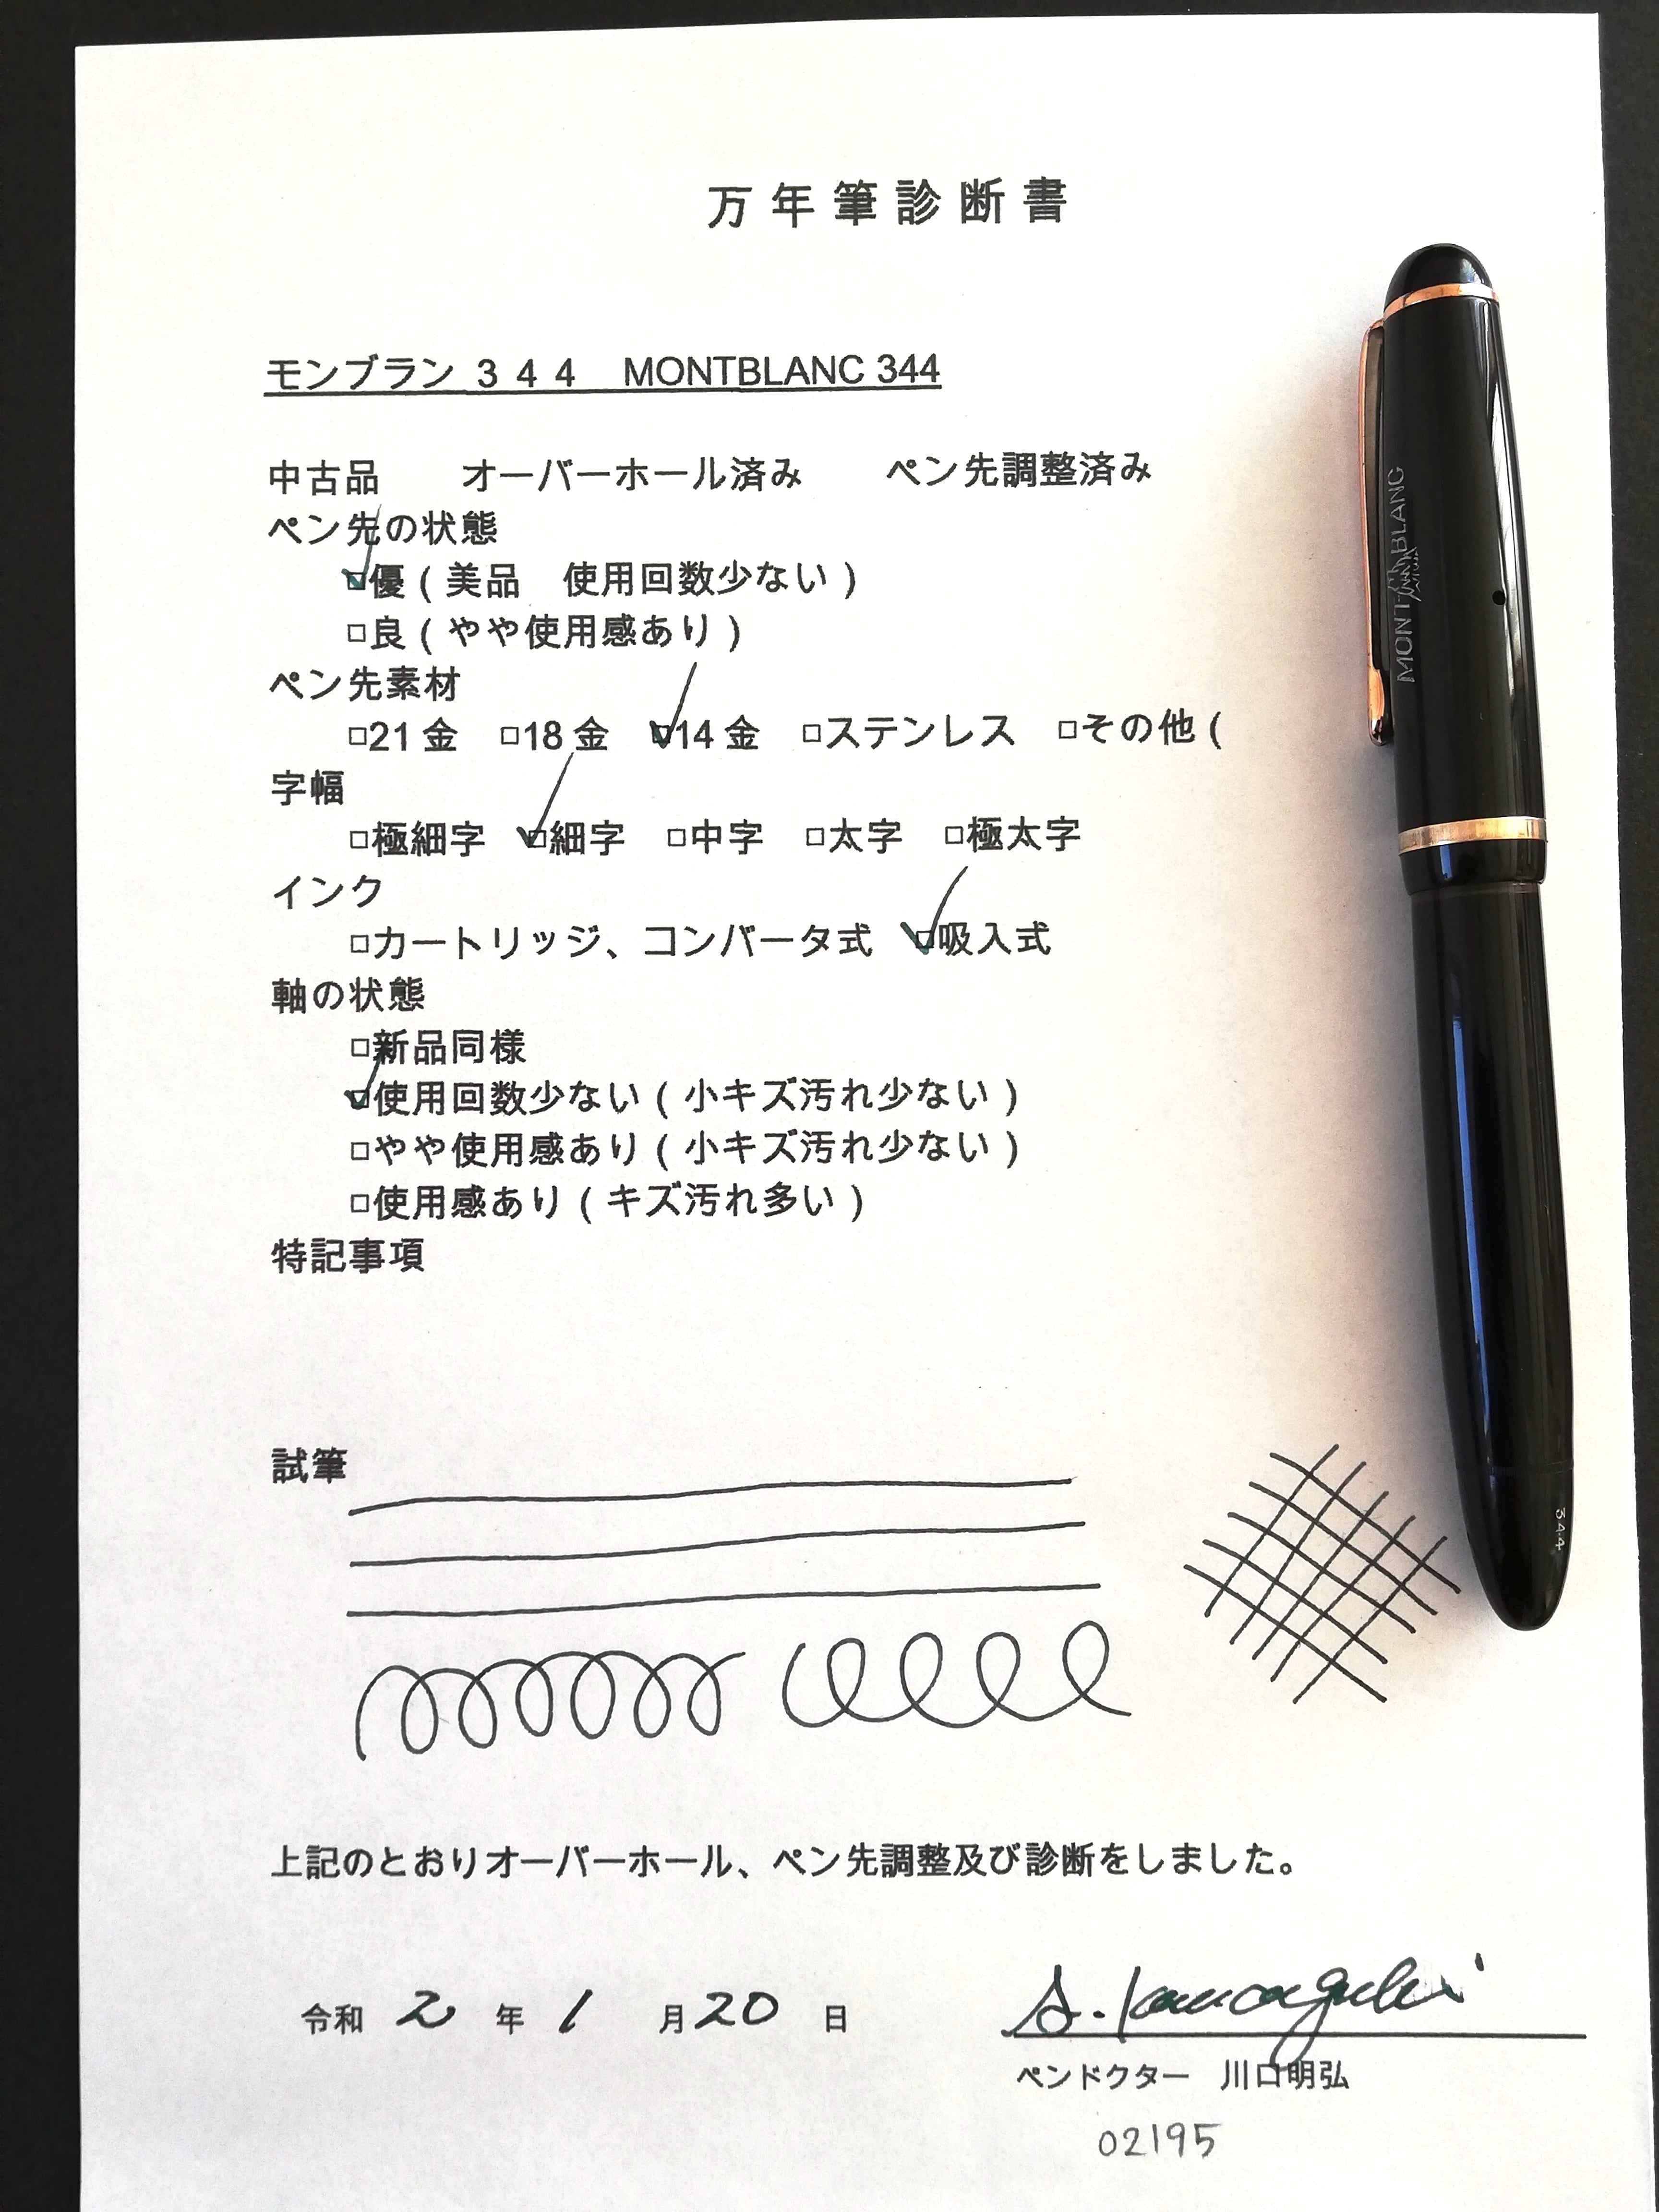 万年筆診断書
モンブラン ３４４　MONTBLANC 344
中古品　　オーバーホール済み　　ペン先調整済み
ペン先の状態
☑優（美品　使用回数少ない）
□良（やや使用感あり）
ペン先素材
□21金　□18金　☑14金　□ステンレス　□その他（
字幅
□極細字　☑細字　□中字　□太字　□極太字
インク
□カートリッジ、コンバータ式　☑吸入式
軸の状態
□新品同様
☑使用回数少ない（小キズ汚れ少ない）
□やや使用感あり（小キズ汚れ少ない）
□使用感あり（キズ汚れ多い）
特記事項
試筆
上記のとおりオーバーホール、ペン先調整及び診断をしました。
令和 2 年 1 月 20 日
A. Kawaguchi
ペンドクター　川口明弘
02195
MONTBLANC
344